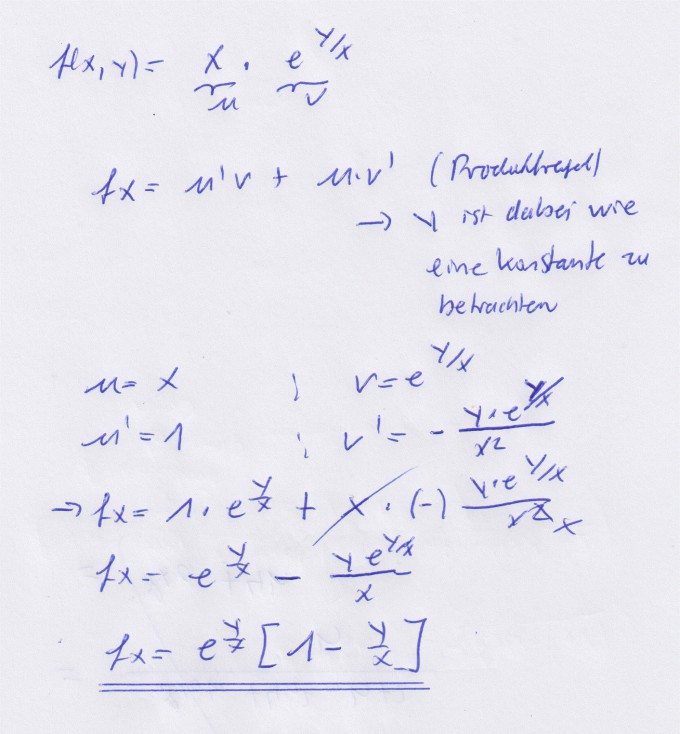 f(x,y) = x · e^(y/x)
u v
fx = u'v + u·v' (Produktregel)
→ y ist dabei wie
eine Konstante zu
betrachten
u = x ; v = e^(y/x)
u' = 1 ; v' = - (y·e^(y/x))/x²
→ fx = 1 · e^(y/x) + x · (-) (y·e^(y/x))/x² x
fx = e^(y/x) - (y e^(y/x))/x
fx = e^(y/x) [1 - y/x]